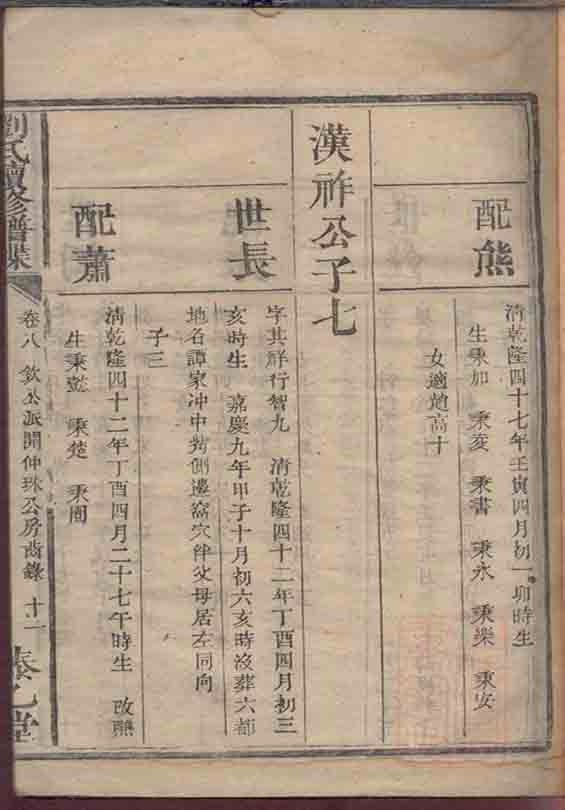 配熊
清乾隆四十七年壬寅四月初一卯時生
生秉加 秉亥 秉書 秉永 秉樂 秉安
女適趙高十
漢祚公子七
世長
字其祥行智九 清乾隆四十二年丁酉四月初三
亥時生 嘉慶九年甲子十月初六亥時沒葬六都
地名譚家冲中灣側邊窩穴伴父母居左同向
子三
配蕭
清乾隆四十二年丁酉四月二十七午時生 改醮
生秉懿 秉楚 秉閏
劉氏續修譜牒
卷八 欽公派開仲珠公房齒錄 十二